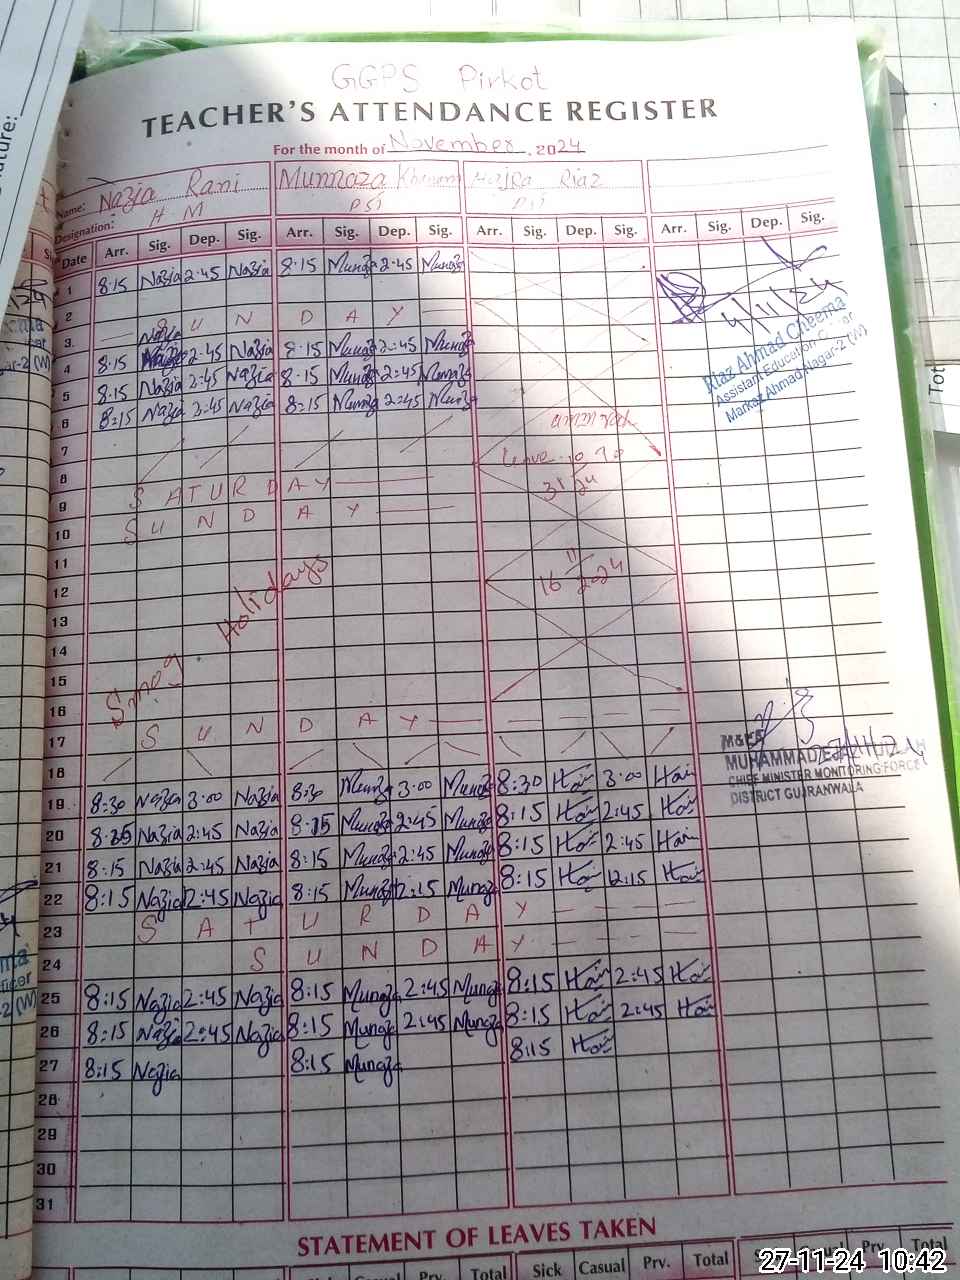 GGPS Pirkot
TEACHER'S ATTENDANCE REGISTER
For the month of November, 2024
Name: Nazia Rani Munnaza Khanum Hajra Riaz
Designation: H M PST
Date Arr. Sig. Dep. Sig. Arr. Sig. Dep. Sig. Arr. Sig. Dep. Sig. Arr. Sig. Dep. Sig.
1 8:15 Nazia 2:45 Nazia 8:15 Munaza 2:45 Munaza
2
3 S U N D A Y
4 8:15 Nazia 2:45 Nazia 8:15 Munaza 2:45 Munaza
4/11/24
5 8:15 Nazia 2:45 Nazia 8:15 Munaza 2:45 Munaza
Riaz Ahmad Cheema
Assistant Education
Markaz Ahmad Nagar-2 (W)
6 8:15 Nazia 2:45 Nazia 8:15 Munaza 2:45 Munaza
7
8
31
24
9 S A T U R D A Y
10 S U N D A Y
11
12
16 11 2024
13
14
15
Smog Holidays
16
17 S U N D A Y
18
M&EA
MUHAMMAD
CHIEF MINISTER MONITORING FORCE
DISTRICT GUJRANWALA
19 8:30 Nazia 3:00 Nazia 8:30 Munaza 3:00 Munaza 8:30 Haj 3:00 Haj
20 8:15 Nazia 2:45 Nazia 8:15 Munaza 2:45 Munaza 8:15 Haj 2:45 Haj
21 8:15 Nazia 2:45 Nazia 8:15 Munaza 2:45 Munaza 8:15 Haj 2:45 Haj
22 8:15 Nazia 12:45 Nazia 8:15 Munaza 12:15 Munaza 8:15 Haj 12:15 Haj
23 S A T U R D A Y
24 S U N D A Y
25 8:15 Nazia 2:45 Nazia 8:15 Munaza 2:45 Munaza 8:15 Haj 2:45 Haj
26 8:15 Nazia 2:45 Nazia 8:15 Munaza 2:45 Munaza 8:15 Haj 2:45 Haj
27 8:15 Nazia 8:15 Munaza 8:15 Haj
28
29
30
31
STATEMENT OF LEAVES TAKEN
Sick Casual Prv. Total Sick Casual Prv. Total
27-11-24 10:42